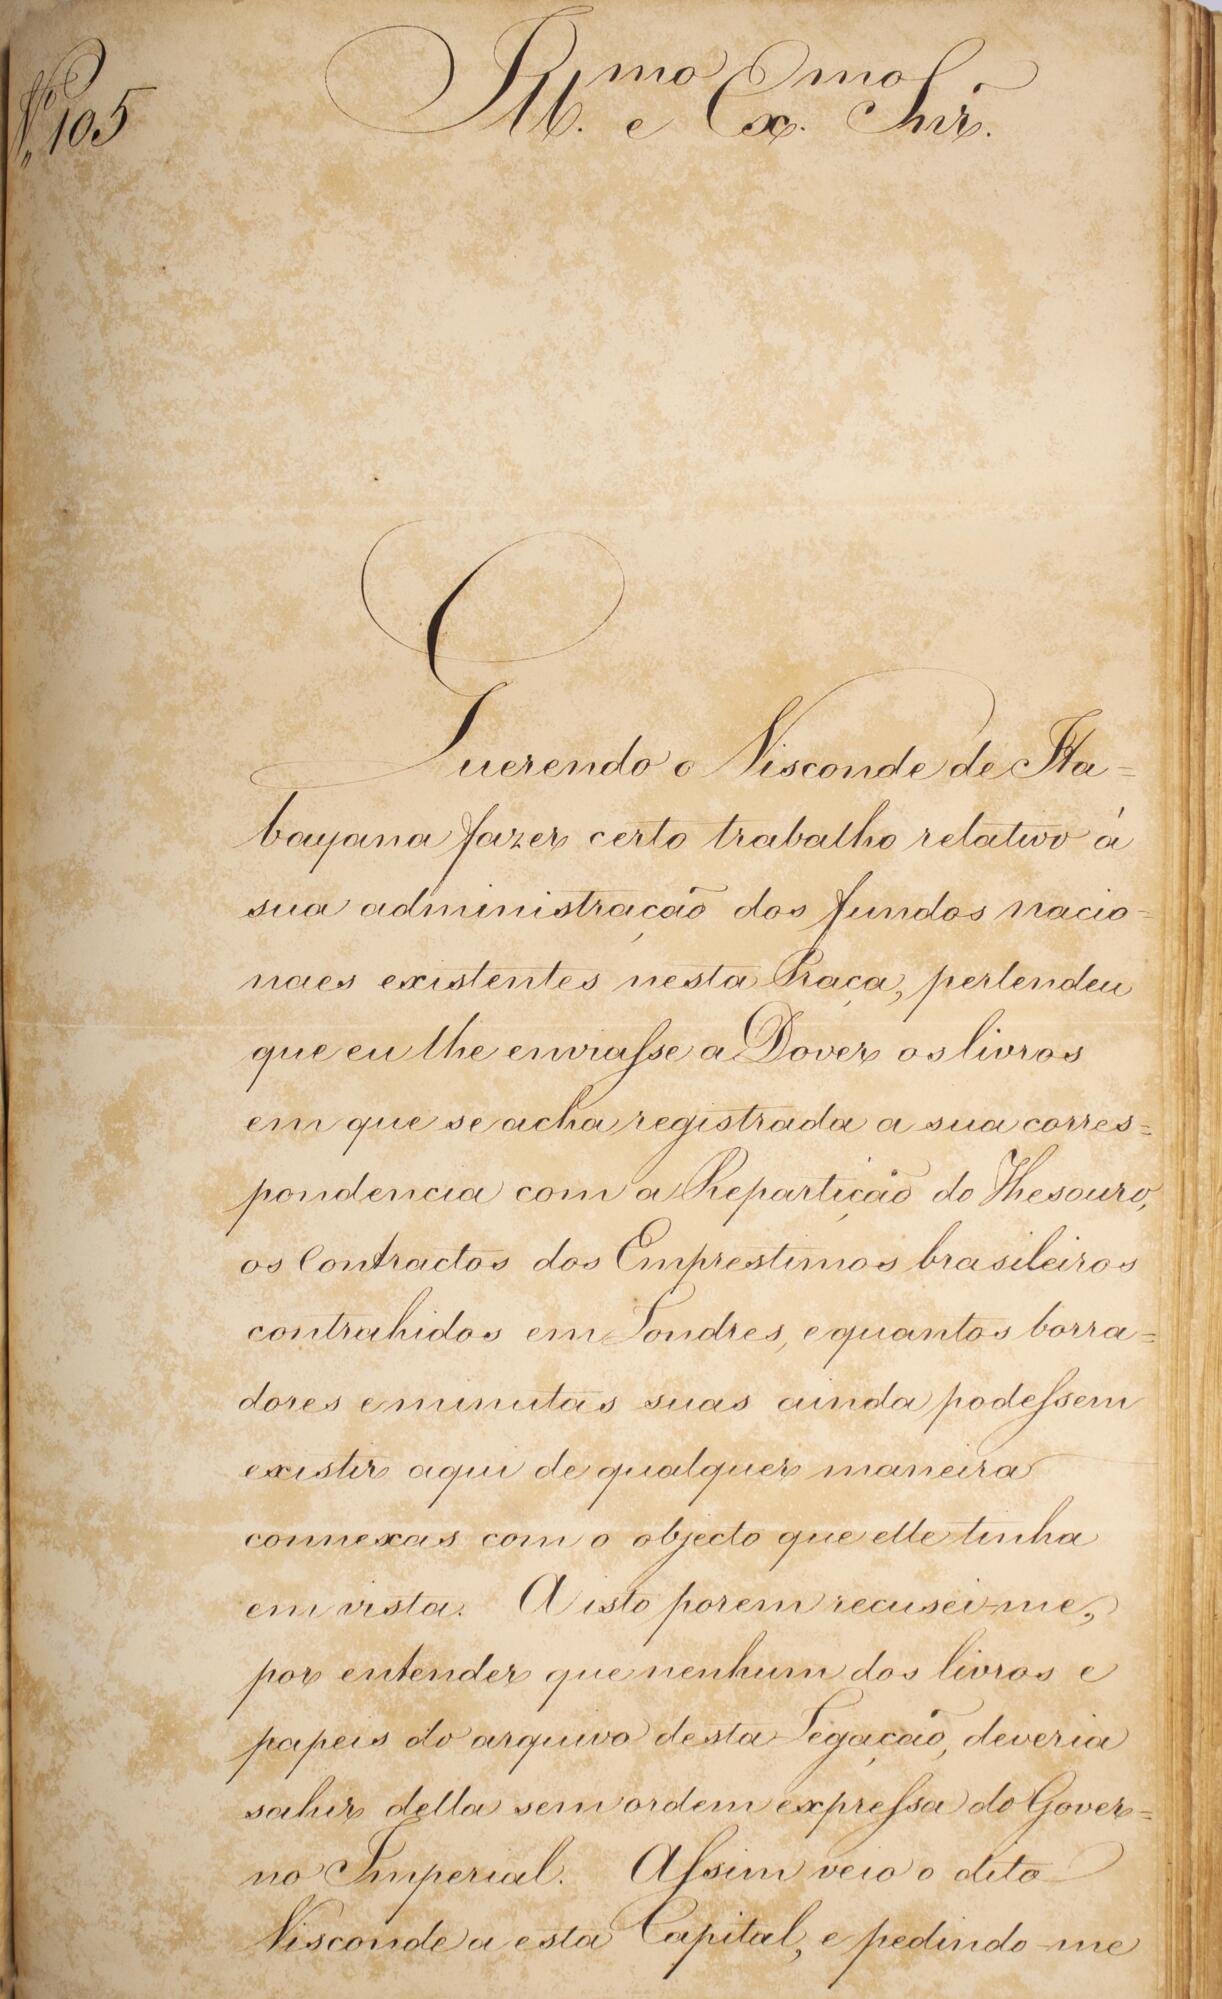 N.º 105
Ill.mo e Ex.mo Snr.
Querendo o Visconde de Ita=
bayana fazer certo trabalho relativo á
sua administração dos fundos nacio=
naes existentes nesta Praça, pertendeu
que eu lhe enviasse a Dover os livros
em que se acha registrada a sua corres=
pondencia com a Repartição do Thesouro,
os Contractos dos Emprestimos brasileiros
contrahidos em Londres, e quantos borra=
dores e minutas suas ainda podessem
existir aqui de qualquer maneira
connexas com o objecto que elle tinha
em vista. A isto porem recusei-me,
por entender que nenhum dos livros e
papeis do arquivo desta Legação, deveria
sahir della sem ordem expressa do Gover=
no Imperial. Assim veio o dito
Visconde a esta Capital, e pedindo-me